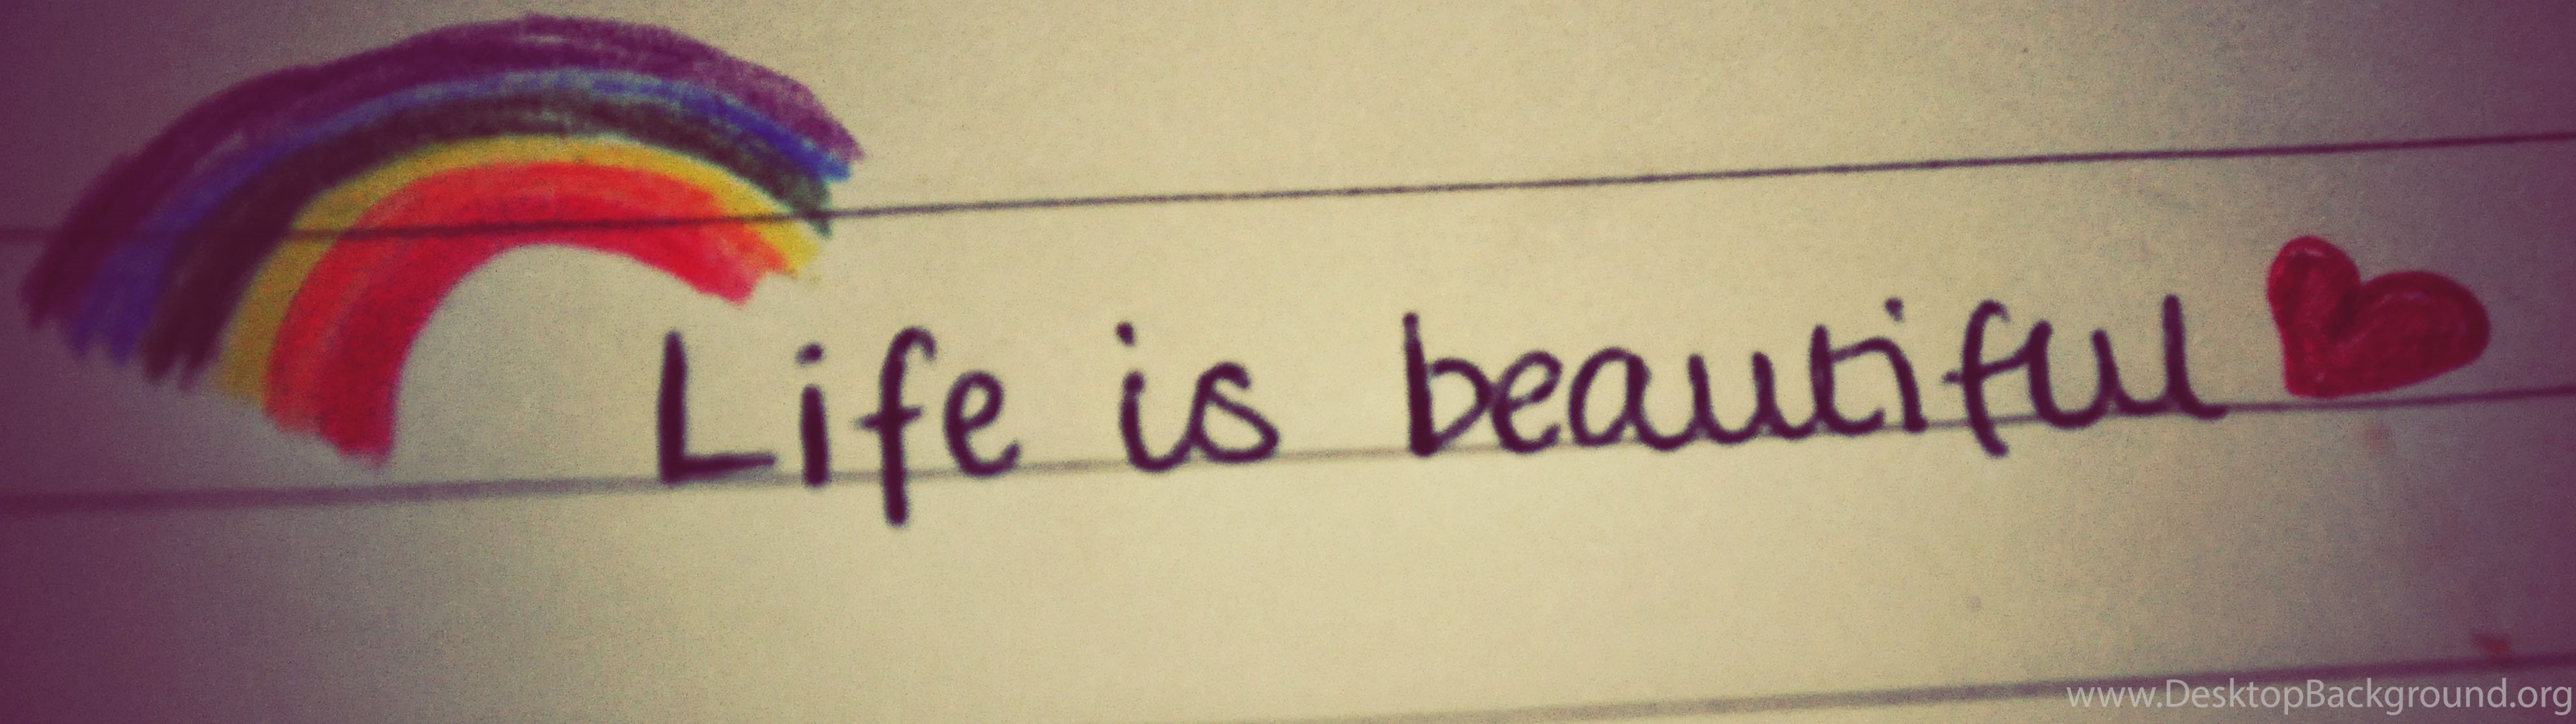 Life is beautiful
www.DesktopBackground.org